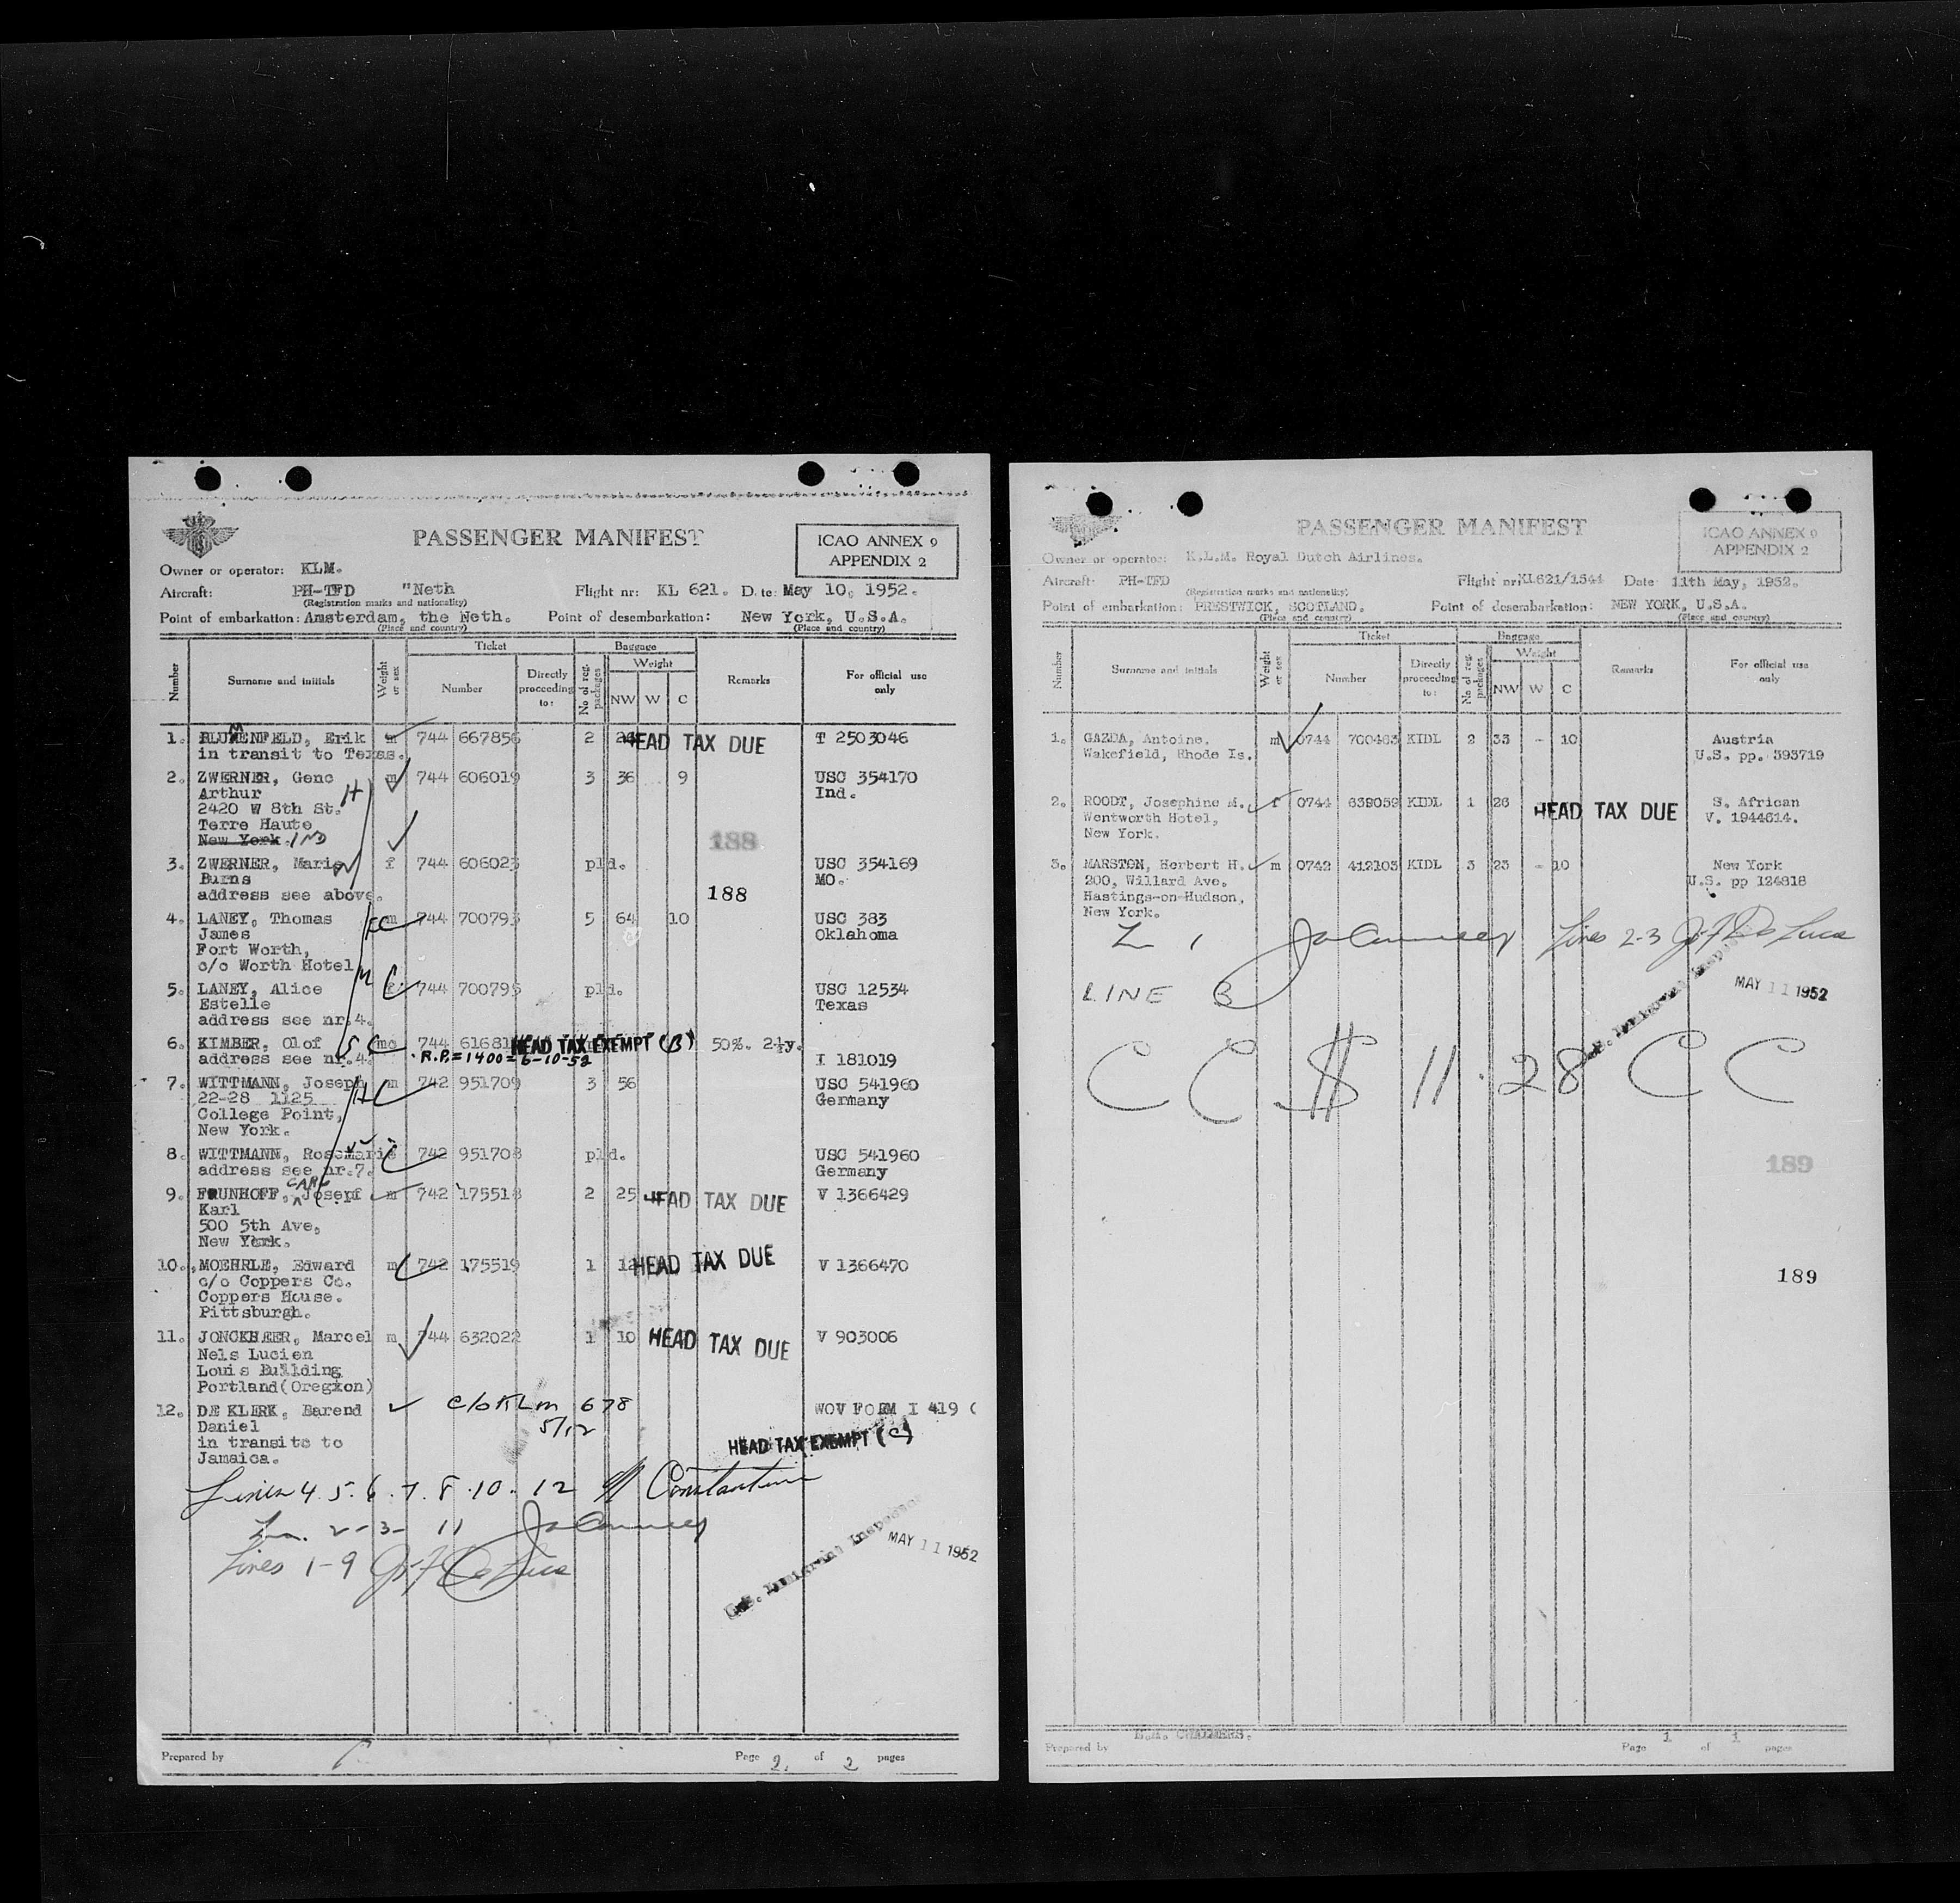 PASSENGER MANIFEST
ICAO ANNEX 9
APPENDIX 2
Owner or operator: KLM.
Aircraft: PH-TFD "Neth Flight nr: KL 621. Date: May 10, 1952.
(Registration marks and nationality)
Point of embarkation: Amsterdam, the Neth. Point of desembarkation: New York, U.S.A.
(Place and country) (Place and country)
Number Surname and initials Weight or sex Ticket Number Directly proceeding to: Baggage No of reg. packages Weight NW W C Remarks For official use only
1. BLUMENFELD, Erik m 744 667856 2 HEAD TAX DUE T 2503046
in transit to Texas.
2. ZWERNER, Gene m 744 606019 3 36 9 USC 354170
Arthur Ind.
2420 W 8th St.
Terre Haute
New York IND
188
3. ZWERNER, Marie f 744 606023 pld. USC 354169
Burns MO.
address see above.
188
4. LANEY, Thomas m 744 700793 5 64 10 USC 383
James Oklahoma
Fort Worth,
c/o Worth Hotel
5. LANEY, Alice f 744 700795 pld. USC 12534
Estelle Texas
address see nr.4.
6. KIMBER, Olof mo 744 61681 HEAD TAX EXEMPT (B) 50%. 2½y.
address see nr.4. R.P.=1400= 6-10-52 I 181019
7. WITTMANN, Joseph m 742 951709 3 56 USC 541960
22-28 1125 Germany
College Point,
New York.
8. WITTMANN, Rosemarie 742 951708 pld. USC 541960
address see nr.7. Germany
CARL
9. FRUNHOFF, Josepf m 742 175518 2 25 HEAD TAX DUE V 1366429
Karl
500 5th Ave,
New York.
10. MOEHRLE, Edward m 742 175519 1 12 HEAD TAX DUE V 1366470
c/o Coppers Co.
Coppers House.
Pittsburgh.
11. JONCKHEER, Marcel m 744 632022 1 10 HEAD TAX DUE V 903006
Nels Lucien
Louis Building
Portland(Oregkon)
12. DE KLERK, Barend c/o KLM 678 WOV FORM I 419 (
Daniel 5/12
in transite to HEAD TAX EXEMPT (C)
Jamaica.
Lines 4.5.6.7.8.10.12 Constantine
2-3- 11
Lines 1-9 De Luca
U.S. Immigrant Inspector
MAY 11 1952
Prepared by Page 2. of 2 pages
PASSENGER MANIFEST
ICAO ANNEX 9
APPENDIX 2
Owner or operator: K.L.M. Royal Dutch Airlines.
Aircraft: PH-TFD Flight nr: KL621/1544 Date 11th May, 1952.
(Registration marks and nationality)
Point of embarkation: PRESTWICK, SCOTLAND. Point of desembarkation: NEW YORK, U.S.A.
(Place and country) (Place and country)
Number Surname and initials Weight or sex Ticket Number Directly proceeding to: Baggage No of reg. packages Weight NW W C Remarks For official use only
1. GAZDA, Antoine. m 0744 700463 KIDL 2 33 - 10 Austria
Wakefield, Rhode Is. U.S. pp. 393719
2. ROODT, Josephine M. f 0744 639059 KIDL 1 26 HEAD TAX DUE S. African
Wentworth Hotel, V. 1944614.
New York.
3. MARSTON, Herbert H. m 0742 412103 KIDL 3 23 - 10 New York
200, Willard Ave. U.S. pp 124818
Hastings-on-Hudson,
New York.
L 1 Lines 2-3 De Luca
LINE 3
U.S. Immigrant Inspector
MAY 11 1952
CC $ 11.28 CC
189
189
Prepared by CHALMERS. Page 1 of 1 pages